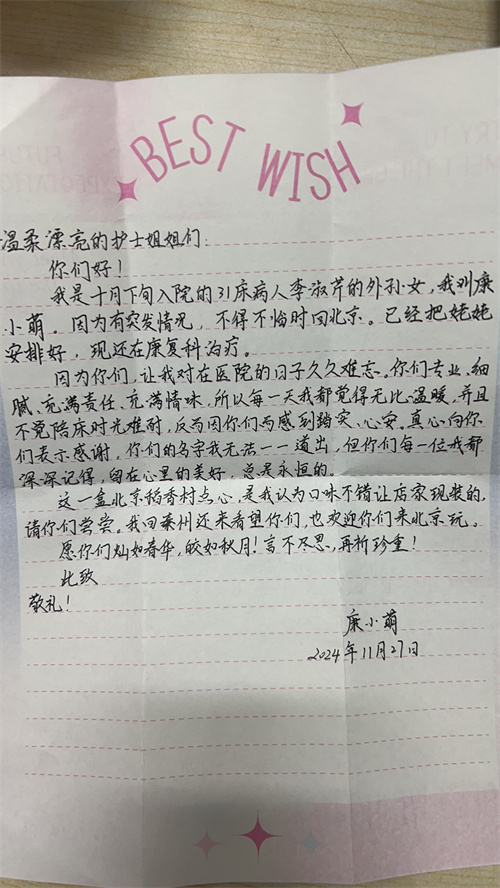 BEST WISH
温柔漂亮的护士姐姐们:
你们好!
我是十月下旬入院的31床病人李淑芹的外孙女,我叫康
小萌。因为有突发情况,不得不临时回北京。已经把姥姥
安排好,现还在康复科治疗。
因为你们,让我对在医院的日子久久难忘。你们专业、细
腻、充满责任、充满情味,所以每一天我都觉得无比温暖,并且
不觉陪床时光难耐,反而因你们而感到踏实、心安。真心向你
们表示感谢,你们的名字我无法一一道出,但你们每一位我都
深深记得,留在心里的美好,总是永恒的。
这一盒北京稻香村点心,是我认为口味不错让店家现装的,
请你们尝尝。我回莱州还来看望你们,也欢迎你们来北京玩。
愿你们灿如春华,皎如秋月!言不尽思,再祈珍重!
此致
敬礼!
康小萌
2024年11月27日